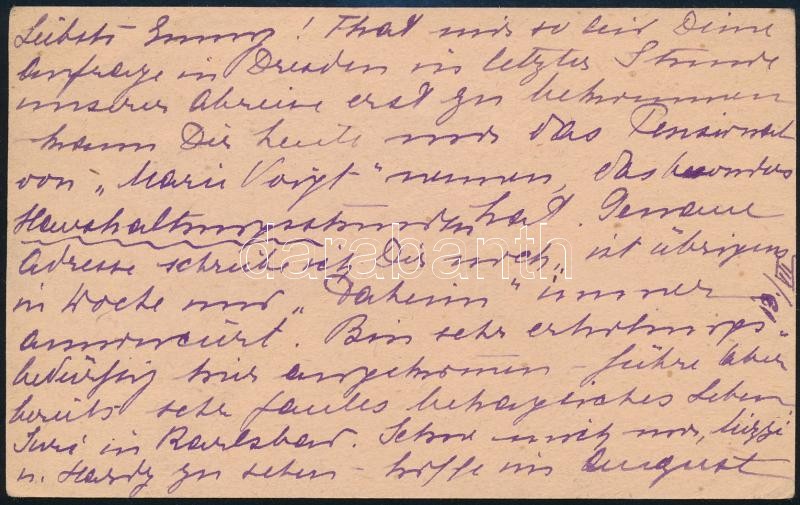 Liebste Emmy! That mir so leid Deine
Anfrage in Dresden in letzter Stunde
unserer Abreise erst zu bekommen
kann Dir heute nur das Pensionat
von „Marie Voigt“ nennen, das besonders
Haushaltungsstunden hat. Genaue
Adresse schreibe ich Dir noch, ist übrigens
in Woche und „Daheim“ immer
annonciert. Bin sehr erholungs-
bedürftig hier angekommen – führe aber
bereits sehr faules behagliches Leben
in Karlsbad. Sehne mich nur,
u. Hardy zu sehen – hoffe im August
darabanth